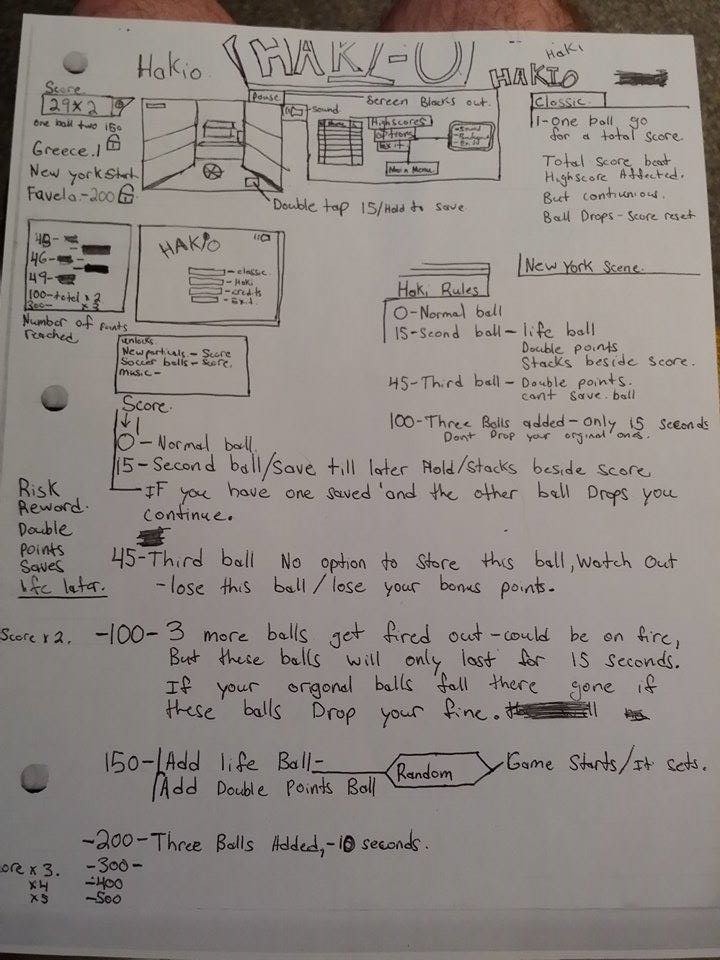 Hakio
HAKI-O
HaKi
HAKIO
Score
29x2
one ball two 150
Greece.1
New york start
Favela.-200
Pause
Sound
Screen Blacks out.
Highscores
options
Exit
Main Menu
Double tap 15/Hold to save
Classic.
1-One ball go
for a total score.
Total Score beat
Highscore Affected.
But contiunious.
Ball Drops-Score reset
48-
46-
49-
100-total x2
300- x3
Number of points
reached
HAKIO
classic
Haki
credits
Exit
New York Scene.
Haki Rules
0-Normal ball
15-Seond ball-life ball
Double points
Stacks beside score.
45-Third ball-Double points.
cant save ball
100-Three Balls added-only 15 seconds
Dont Drop your orginal ones.
unlocks
New particals-Score
Soccer balls-Score.
music-
Score.
0-Normal ball.
15-Second ball/Save till later Hold/Stacks beside score
IF you have one saved and the other ball Drops you
continue.
Risk
Reward.
Double
points
Saves
life later.
45-Third ball No option to store this ball, Watch Out
-lose this ball/lose your bonus points.
Score x2.
-100-3 more balls get fired out-could be on fire,
But these balls will only last for 15 seconds.
If your orgonal balls fall there gone if
these balls Drop your fine.
150-Add life Ball-
Add Double Points Ball
Random
Game Starts/It sets.
-200-Three Balls Added,-10 seconds.
ore x3. -300-
x4 -400
x5 -500